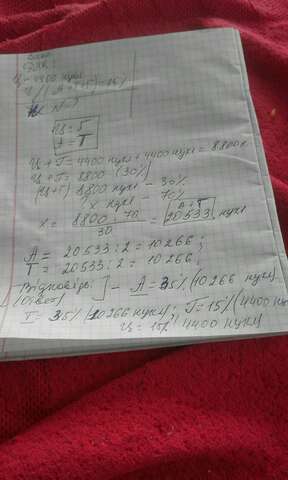 Ц = 4400 нукл
Ц = Г
А = Т
Ц + Г = 4400 нукл + 4400 нукл = 8800н
Ц + Г = 8800 (30%)
(Ц+Г) 8800 нукл – 30%
х нукл – 70%
х = 8800 · 70 / 30 = 20533 нукл А + Т
А = 20533 : 2 = 10266 ;
Т = 20533 : 2 = 10266 ;
Відповідь: ] – А = 35% (10266 нукл)
(Ответ)
Т = 35% (10266 нукл) ; Г = 15% (4400 нукл)
Ц = 15% 4400 нукл)